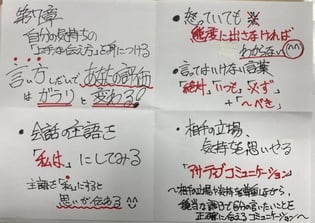 第7章
自分の気持ちの
「上手な伝え方」を身につける
言い方しだいで あなたの評価
はガラリと変わる!!
・怒っていても
態度に出さなければ
わからない
・言ってはいけない言葉
「絶対」「いつも」「必ず」
+「〜べき」
・会話の主語を
「私は、」にしてみる
主語を「私」にすると
思いが伝わる
・相手の立場、
気持ちを思いやる
「アサーティブコミュニケーション」
〜相手の立場や気持ちを尊重しながら、
適当な言葉で自分の言いたいことを
正確に伝えるコミュニケーション〜